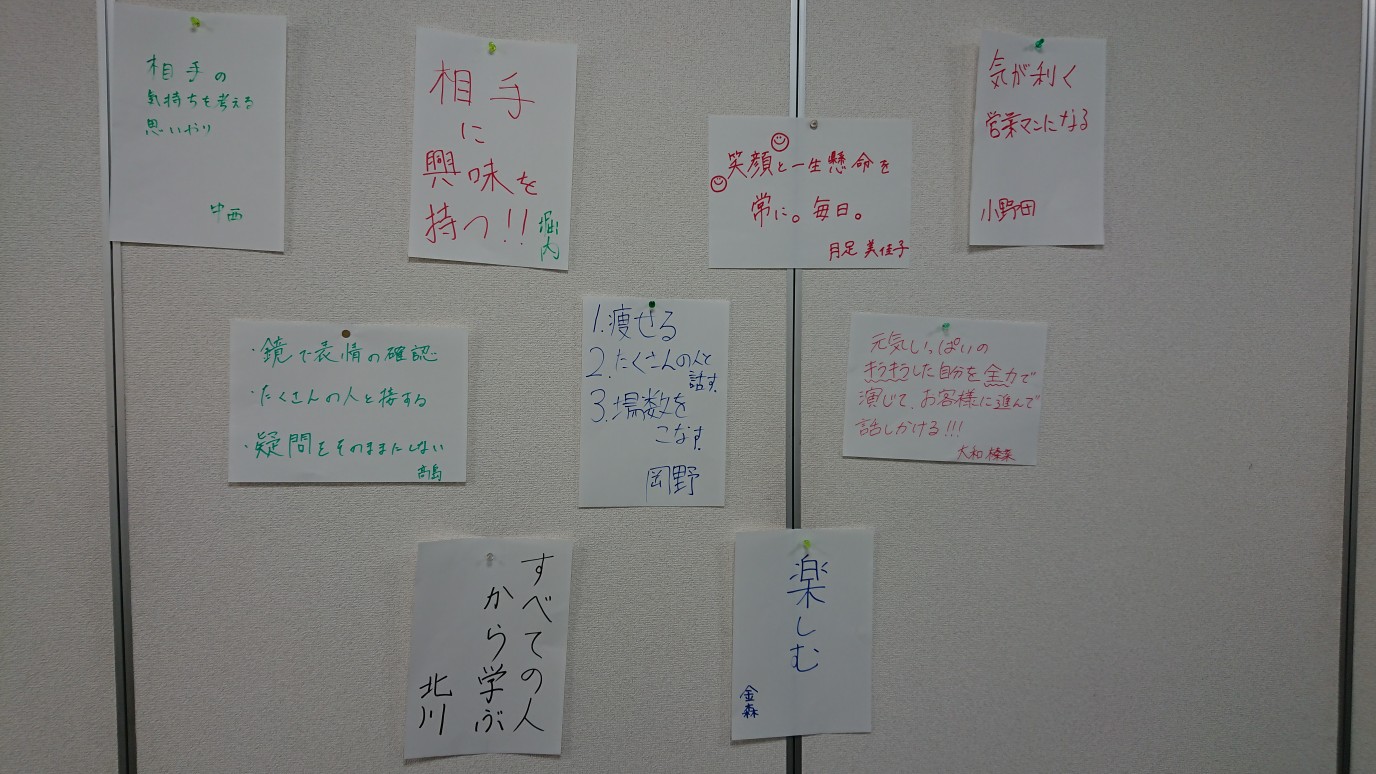 相手の
気持ちを考える
思いやり
中西
相手
に
興味を
持つ!!
堀内
笑顔と一生懸命を
常に。毎日。
月足 美佳子
気が利く
営業マンになる
小野田
・鏡で表情の確認
・たくさんの人と接する
・疑問をそのままにしない
高島
1.痩せる
2.たくさんの人と
話す.
3.場数を
こなす.
岡野
元気いっぱいの
キラキラした自分を全力で
演じて、お客様に進んで
話しかける!!!
大和
すべての人
から学ぶ
北川
楽しむ
金森